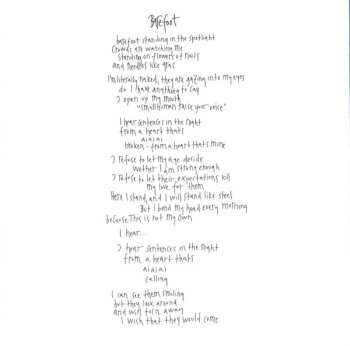 Barefoot
barefoot standing in the spotlight
Crowds are watching me
Standing on flowers of nails
and needles like glas
I'm literally naked, they are gazing into my eyes
do I have anything to say
I open up my mouth
"small human raise your voice"
I hear sentences in the night
from a heart thats
aiaiai
broken - from a heart that's mine
I refuse to let my age decide
wether I am strong enough
I refuse to let their expectations kill
my love for them
Here I stand, and I will stand like steel
But I bend my head every morning
because This is not my own
I hear...
I hear sentences in the night
from a heart that's
aiaiai
calling
I can see them smiling
but they look around
and will turn away
I wish that they would come